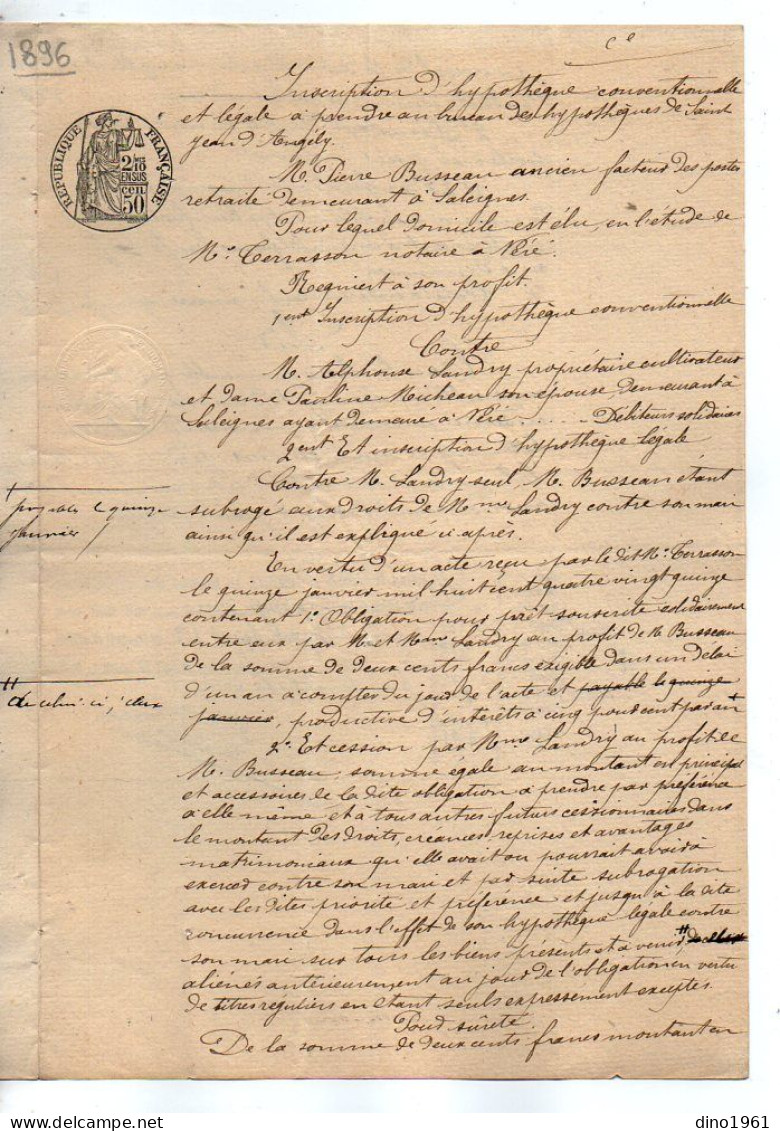 1896
Ce
Inscription d'hypothèque conventionnelle
et légale à prendre au bureau des hypothèques de Saint
Jean d'Angély.
RÉPUBLIQUE FRANÇAISE
2/10
EN SUS
cen
50
M. Pierre Busseau ancien facteur des postes
retraité demeurant à Saleignes.
Pour lequel domicile est élu, en l'étude de
Me Terrasson notaire à Néré.
Requiert à son profit.
1ent Inscription d'hypothèque conventionnelle
Contre
M. Alphonse Landry propriétaire cultivateur
et dame Pauline Micheau son épouse, demeurant à
Saleignes ayant demeuré à Néré ..... Débiteurs solidaires
2ent Et inscription d'hypothèque légale
Contre M. Landry seul, M. Busseau étant
subrogé aux droits de Mme Landry contre son mari
ainsi qu'il est expliqué ci après.
payables le quinze
janvier /
En vertu d'un acte reçu par le dit Me Terrasson
le quinze janvier mil huit cent quatre vingt quinze
contenant 1º Obligation pour prêt souscrite solidairement
entre eux par M et Mme Landry au profit de M Busseau
de la somme de deux cents francs exigible dans un délai
d'un an à compter du jour de l'acte et payable le quinze
janvier, productive d'intérêts à cinq pour cent par an
2º Et cession par Mme Landry au profit de
M. Busseau, somme égale au montant en principal
et accessoires de la dite obligation à prendre par préférence
à elle même et à tous autres futurs cessionnaires dans
le montant des droits, créances reprises et avantages
matrimoniaux qu'elle avait ou pourrait avoir à
exercer contre son mari et par suite subrogation
avec les dites priorité et préférence et jusqu'à la dite
concurrence dans l'effet de son hypothèque légale contre
son mari sur tous les biens présents et à venir,
de celui-ci, ceux
aliénés antérieurement au jour de l'obligation en vertu
de titres réguliers en étant seuls expressement exceptés.
Pour sûreté.
De la somme de deux cents francs montant en
dino1961